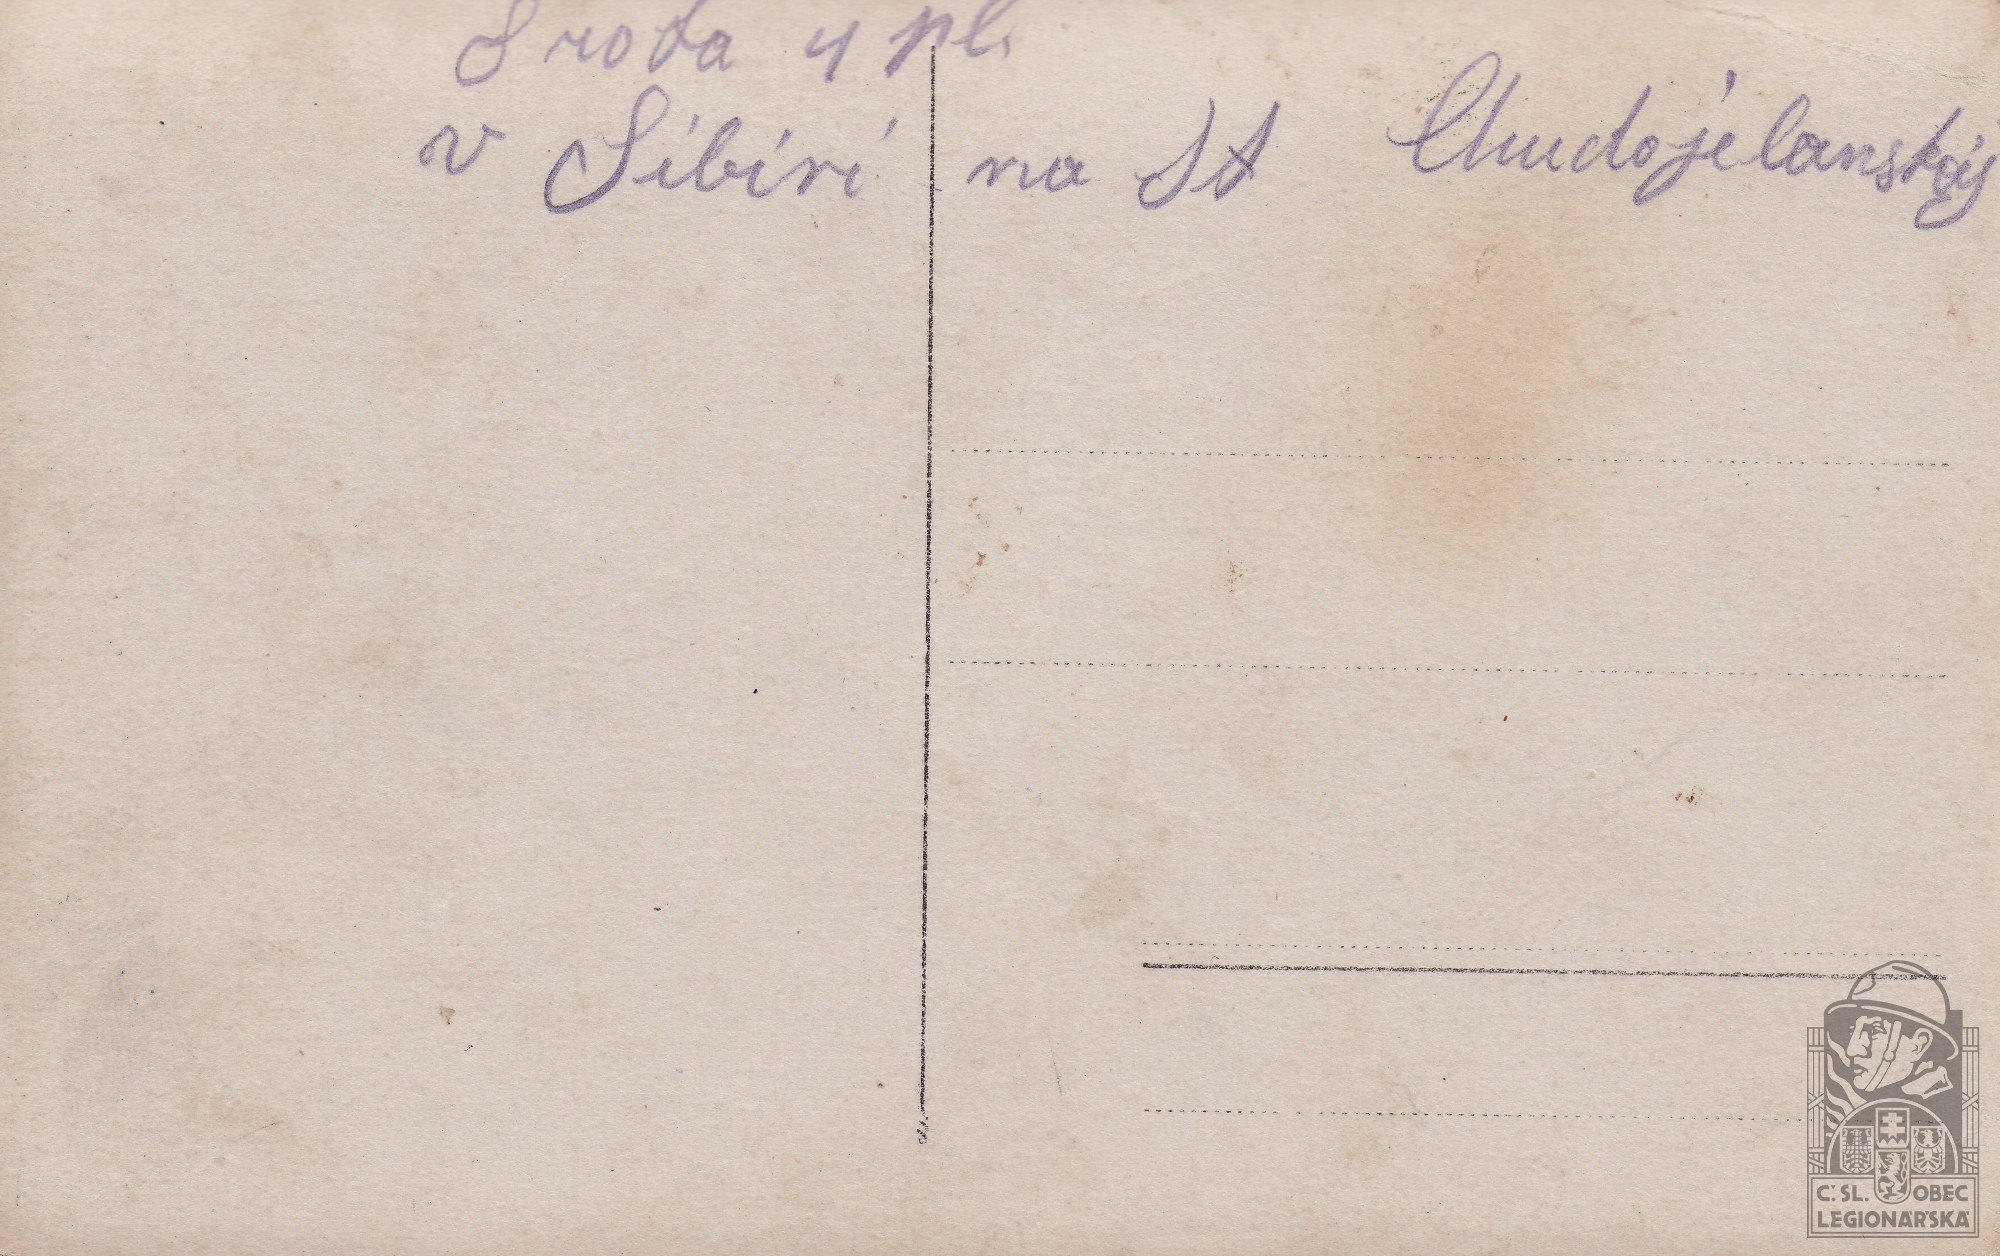 8 rota 4 pl.
v Sibíri na St Chudojelanskej
Č. SL. OBEC
LEGIONÁŘSKÁ